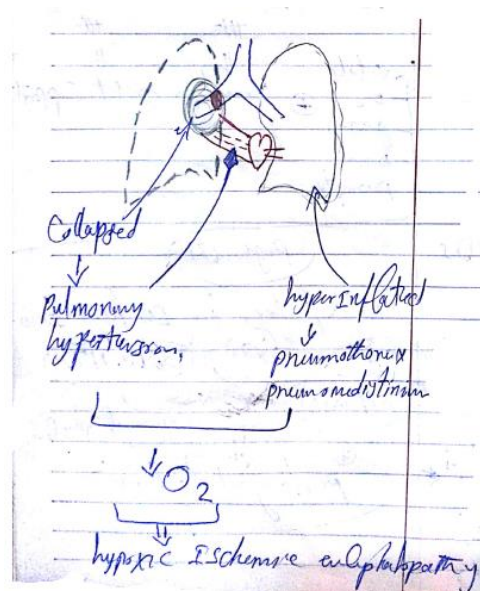 Collapsed
Pulmonary
hypertension,
hyperInflated
pneumothorax
pneumomedistinum
↓O2
hypoxic Ischemic encephalopathy